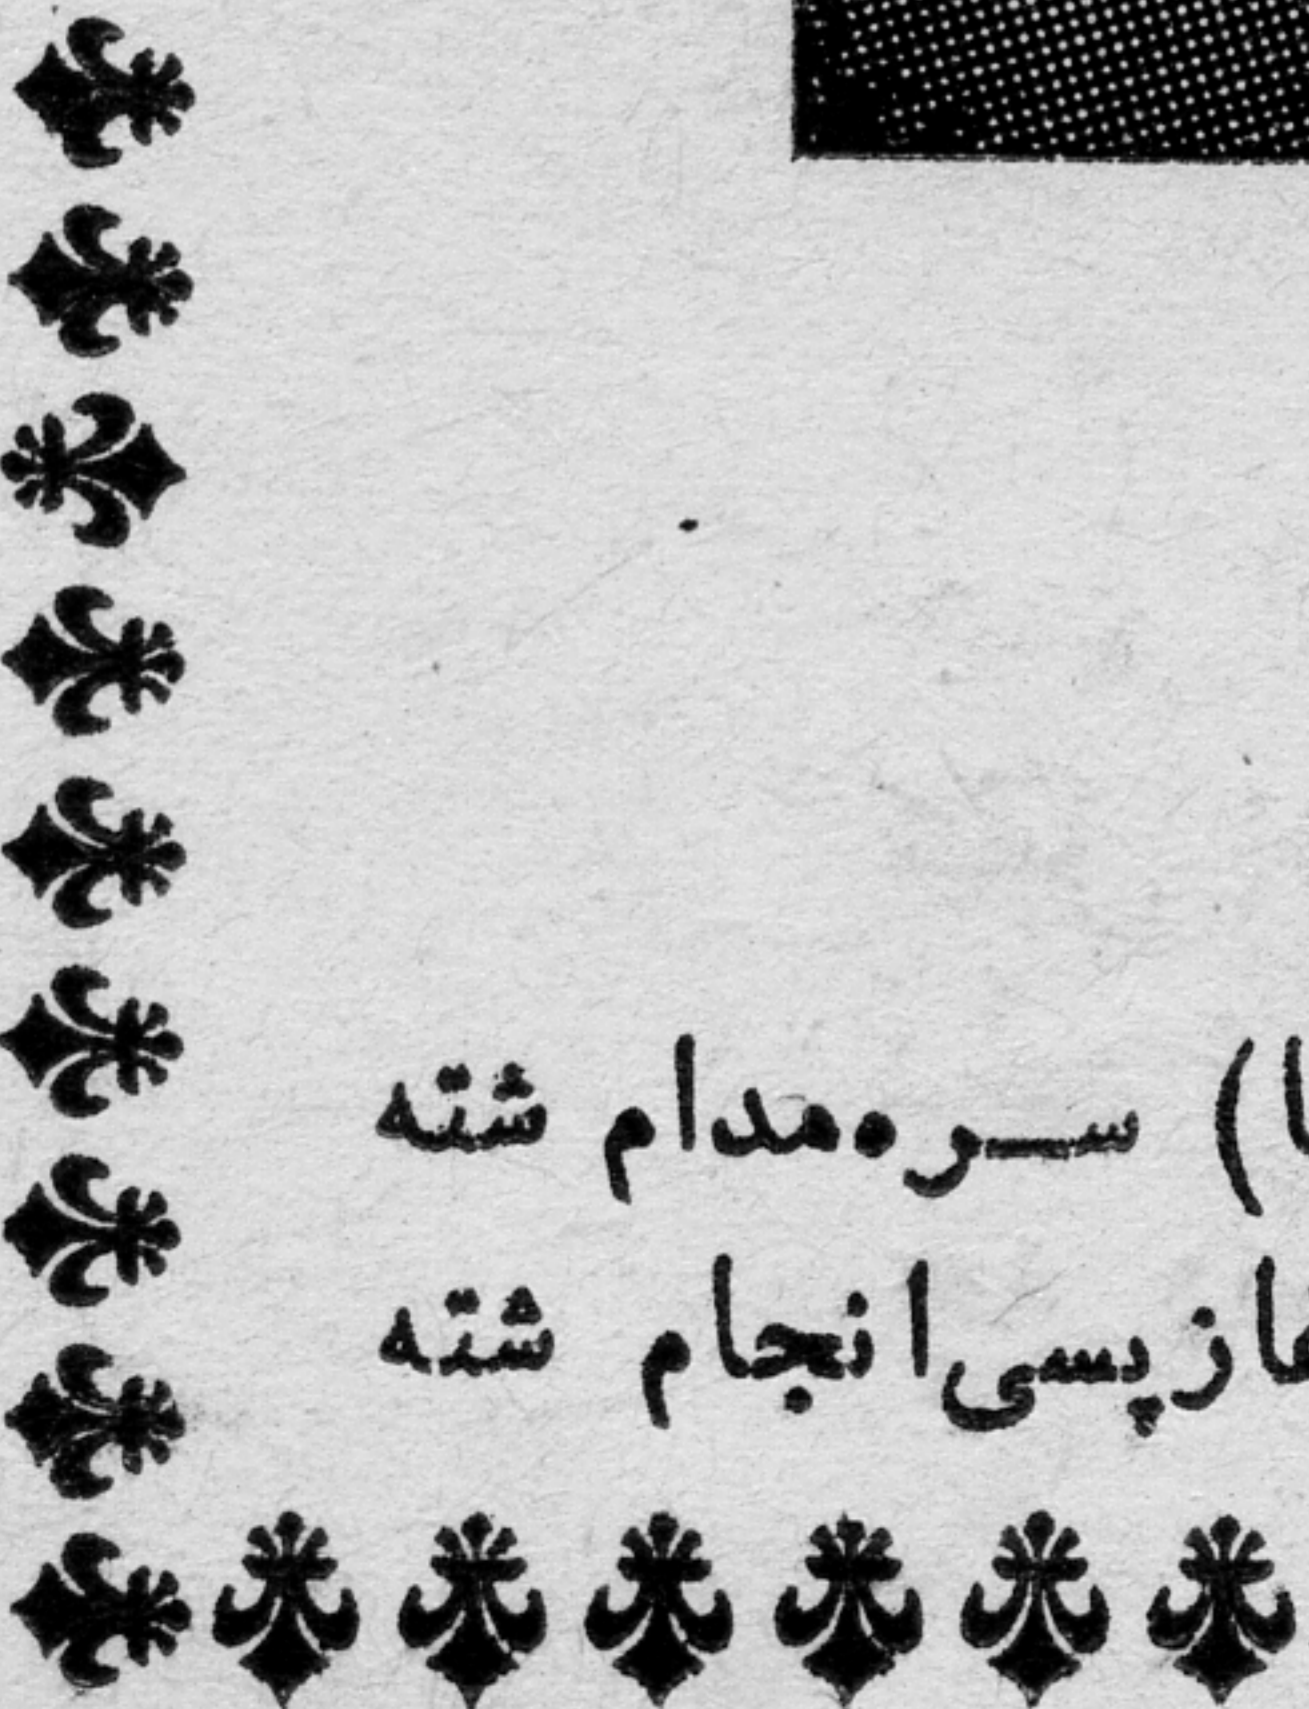 ا) ســره‌مدام شته
ازپسی انجام شته